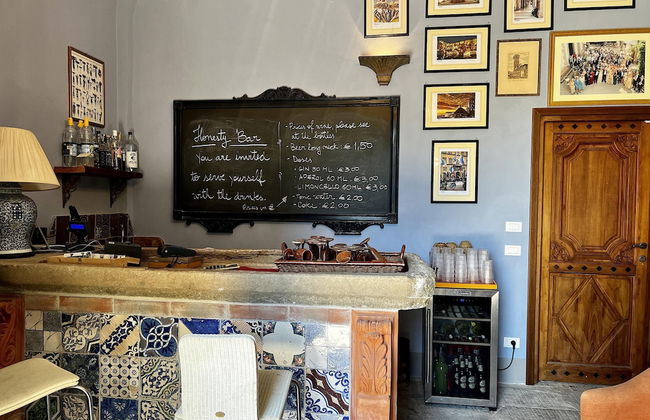 Honesty Bar
You are invited
to serve yourself
with the drinks.
Prices in €
- Prices of wine please see
at the bottles
- Beer long neck € 1,50
- Doses
- GIN 30 ML €3,00
- APEROL 60 ML €3,00
- LIMONCELLO 60 ML €3,00
- Tonic water €2.00
- Coke €2.00